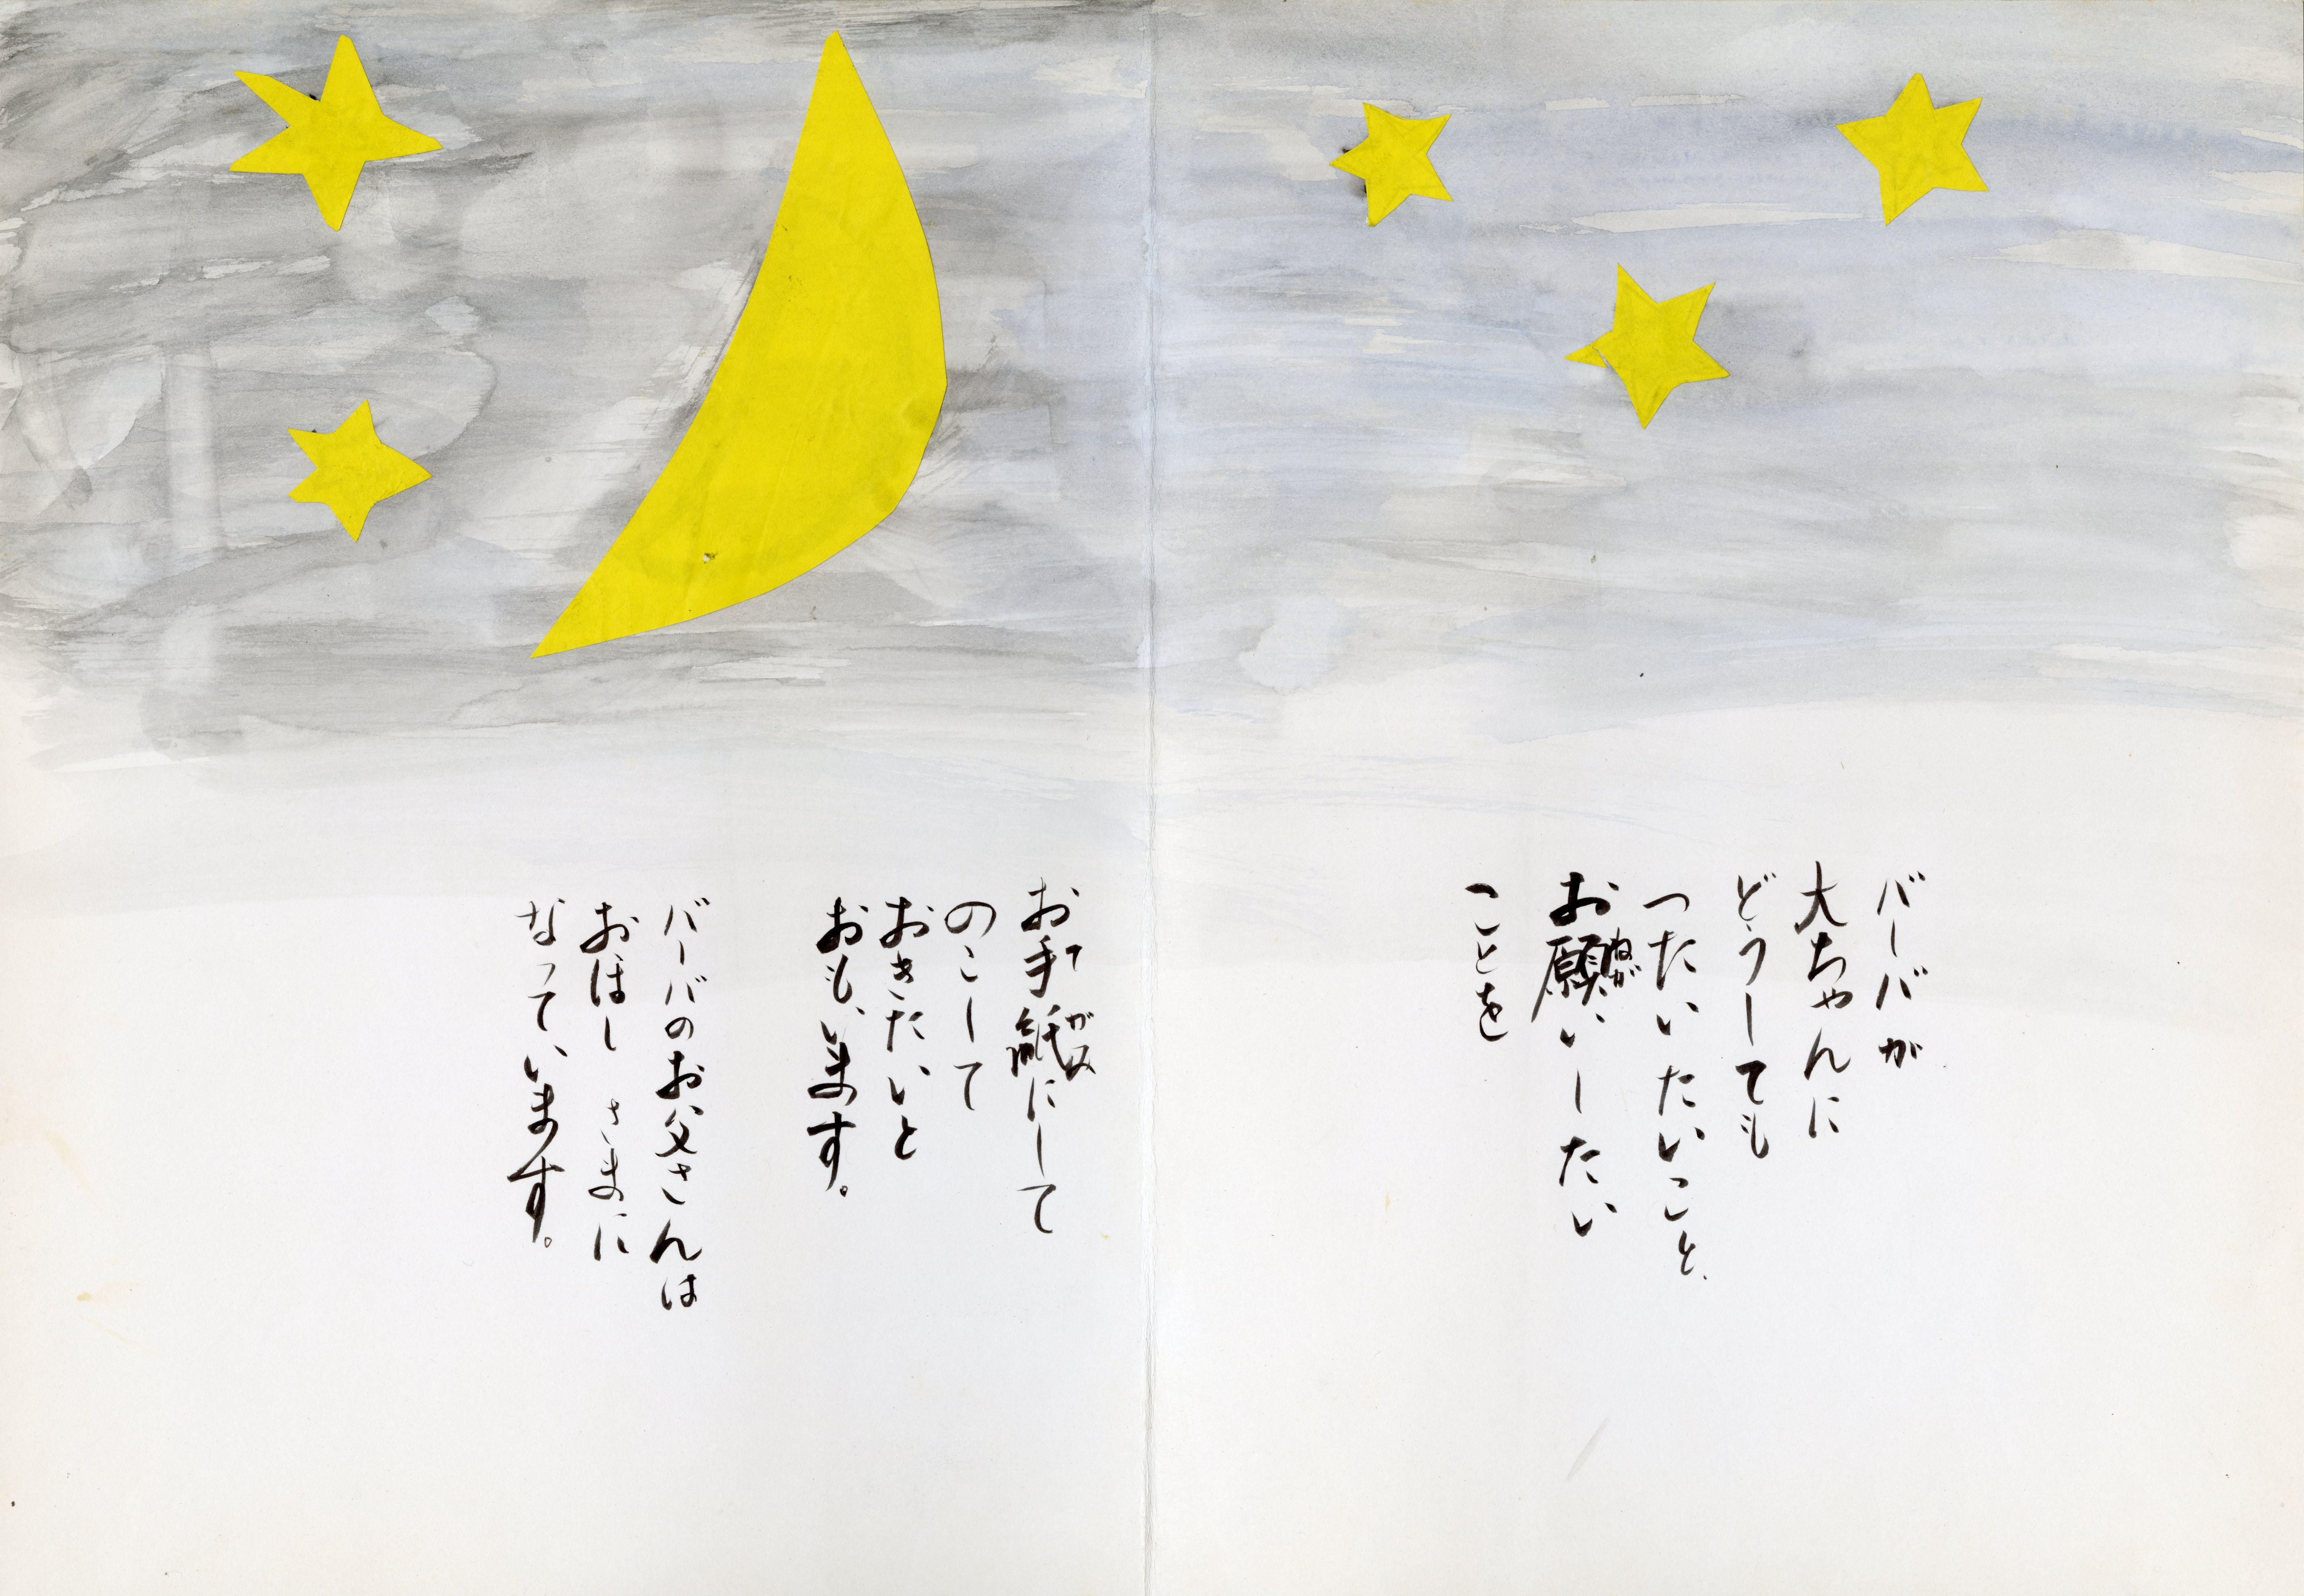 バーバが
大ちゃんに
どうしても
つたいたいこと、
お願いしたい
ねが
ことを
お手紙にして
て
がみ
のこして
おきたいと
おもいます。
バーバのお父さんは
おほしさまに
なっています。